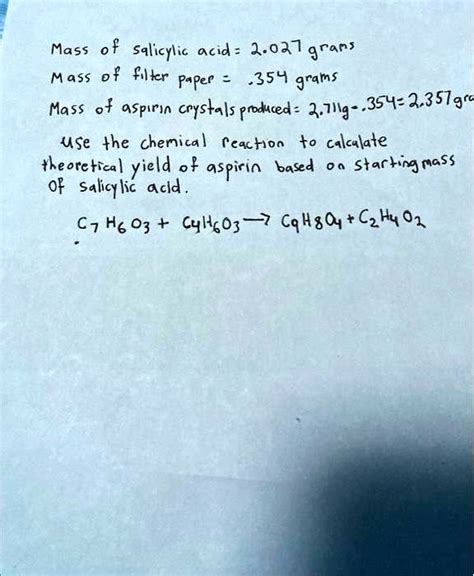 Mass of salicylic acid = 2.027 grams
Mass of filter paper = .354 grams
Mass of aspirin crystals produced = 2.711g - .354 = 2.357 gra
Use the chemical reaction to calculate
theoretical yield of aspirin based on starting mass
Of salicylic acid.
C7 H6 O3 + C4H6O3 → C9H8O4 + C2H4O2